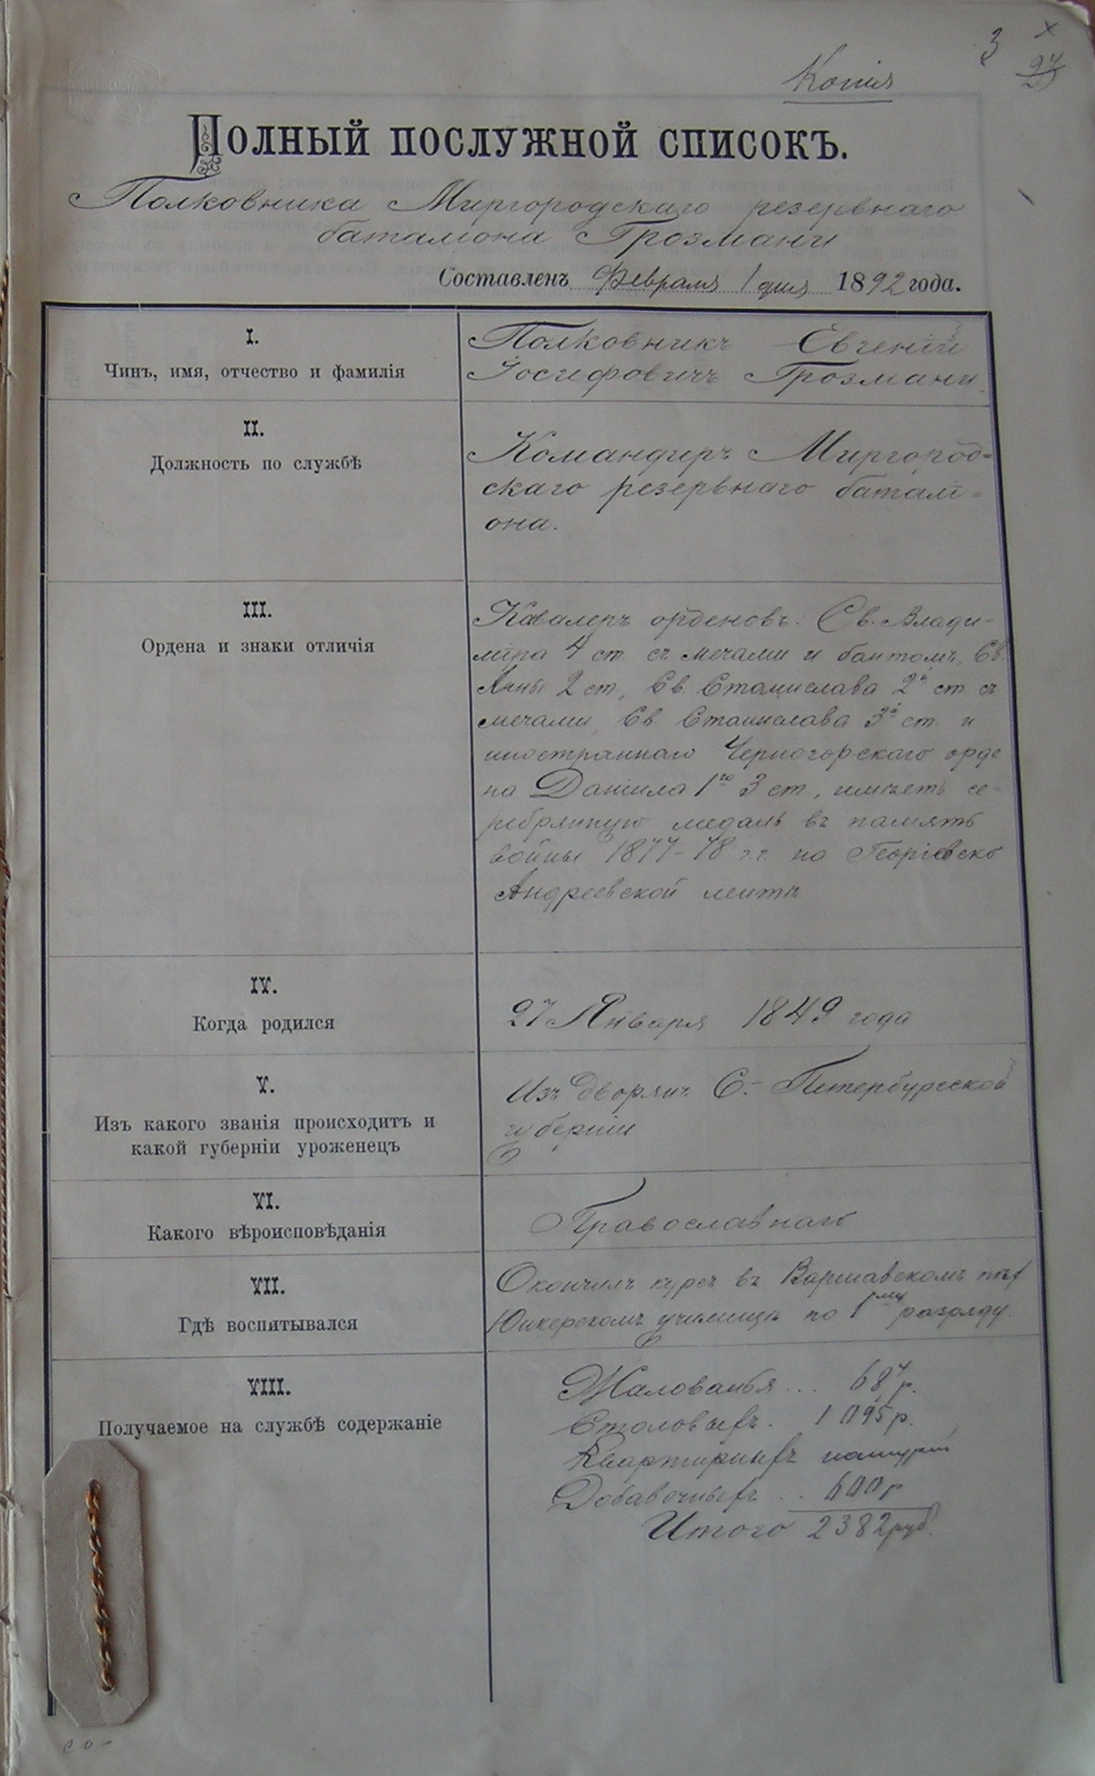 3
Копія
Полный послужной списокъ.
Полковника Миргородскаго резервнаго
баталіона Грозмани
Составленъ Февраля 1 дня 1892 года.
I.
Чинъ, имя, отчество и фамилія
Полковникъ Евгеній
Іосифовичъ Грозмани
II.
Должность по службѣ
Командиръ Миргород-
скаго резервнаго баталі-
она.
III.
Ордена и знаки отличія
Кавалеръ орденовъ: Св. Влади-
міра 4 ст. съ мечами и бантомъ, Св.
Анны 2 ст., Св. Станислава 2й ст. съ
мечами, Св. Станислава 3й ст. и
иностраннаго Черногорскаго орде
на Даніила 1го 3 ст., имѣетъ се-
ребряную медаль въ память
войны 1877-78 г.г. на Георгіевско
Андреевской лентѣ
IV.
Когда родился
27 Января 1849 года
V.
Изъ какого званія происходитъ и
какой губерніи уроженецъ
Изъ дворянъ С.-Петербургской
губерніи
VI.
Какого вѣроисповѣданія
Православнаго
VII.
Гдѣ воспитывался
Окончилъ курсъ въ Варшавскомъ пѣх
Юнкерскомъ училищѣ по 1му разряду.
VIII.
Получаемое на службѣ содержаніе
Жалованья ... 687 р.
Столовыхъ. 1095 р.
Квартирныхъ натурой
Добавочныхъ .. 600 р
Итого 2382 руб.